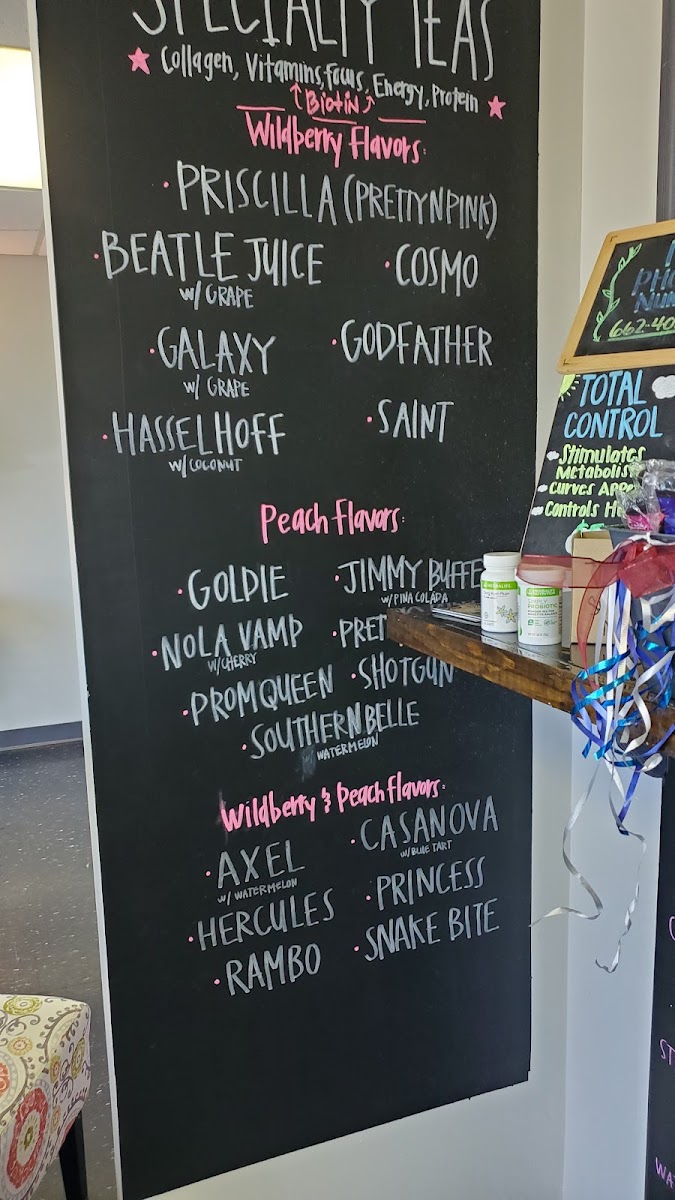 SPECIALTY TEAS
Collagen, Vitamins, Focus, Energy, Protein
Biotin
Wildberry Flavors:
PRISCILLA (PRETTY N PINK)
BEATLE JUICE
W/ GRAPE
COSMO
GALAXY
W/ GRAPE
GODFATHER
HASSELHOFF
W/ COCONUT
SAINT
Peach Flavors:
GOLDIE
JIMMY BUFFE
W/ PINA COLADA
NOLA VAMP
W/ CHERRY
PRET
PROM QUEEN
SHOTGUN
SOUTHERN BELLE
WATERMELON
Wildberry & Peach Flavors:
AXEL
W/ WATERMELON
CASANOVA
W/ BLUE TART
HERCULES
PRINCESS
RAMBO
SNAKE BITE
662-40
TOTAL
CONTROL
Stimulates
Metabolis
Curves Appe
Controls H
HERBALIFE
PROBIOTIC
ST
WA